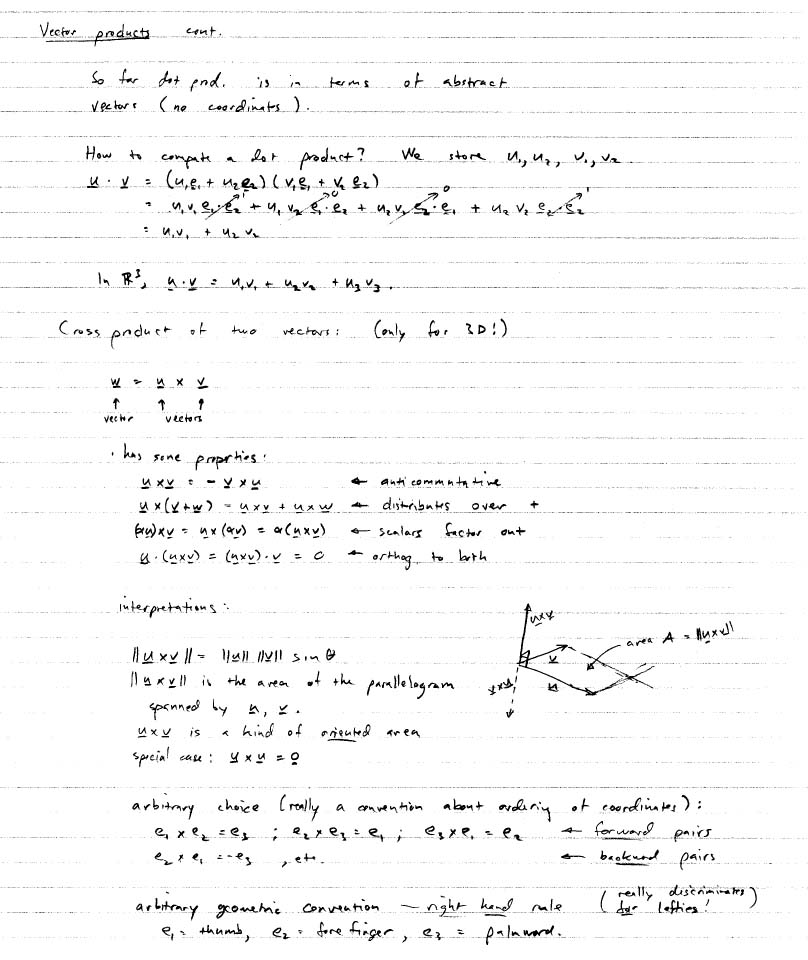 Vector products cont.
So far dot prod. is in terms of abstract
vectors (no coordinates).
How to compute a dot product? We store u₁, u₂, v₁, v₂
u · v = (u₁e₁ + u₂e₂)(v₁e₁ + v₂e₂)
= u₁v₁ e₁·e₂ 1 + u₁v₂ e₁·e₂ 0 + u₂v₁ e₂·e₁ 0 + u₂v₂ e₂·e₂ 1
= u₁v₁ + u₂v₂
In ℝ³, u·v = u₁v₁ + u₂v₂ + u₃v₃.
Cross product of two vectors: (only for 3D!)
w = u × v
↑ ↑ ↑
vector vectors
· has some properties:
u×v = -v×u ← anticommutative
u×(v+w) = u×v + u×w ← distributes over +
(αu)×v = u×(αv) = α(u×v) ← scalars factor out
u·(u×v) = (u×v)·v = 0 ← orthog. to both
interpretations:
u×v
area A = ||u×v||
v
u
v×u
||u×v|| = ||u|| ||v|| sin θ
||u×v|| is the area of the parallelogram
spanned by u, v.
u×v is a kind of oriented area
special case: u×u = 0
arbitrary choice (really a convention about ordering of coordinates):
e₁×e₂ = e₃ ; e₂×e₃ = e₁ ; e₃×e₁ = e₂ ← forward pairs
e₂×e₁ = -e₃ , etc. ← backward pairs
arbitrary geometric convention — right hand rule (really discriminates for lefties!)
e₁ = thumb, e₂ = fore finger, e₃ = palmward.